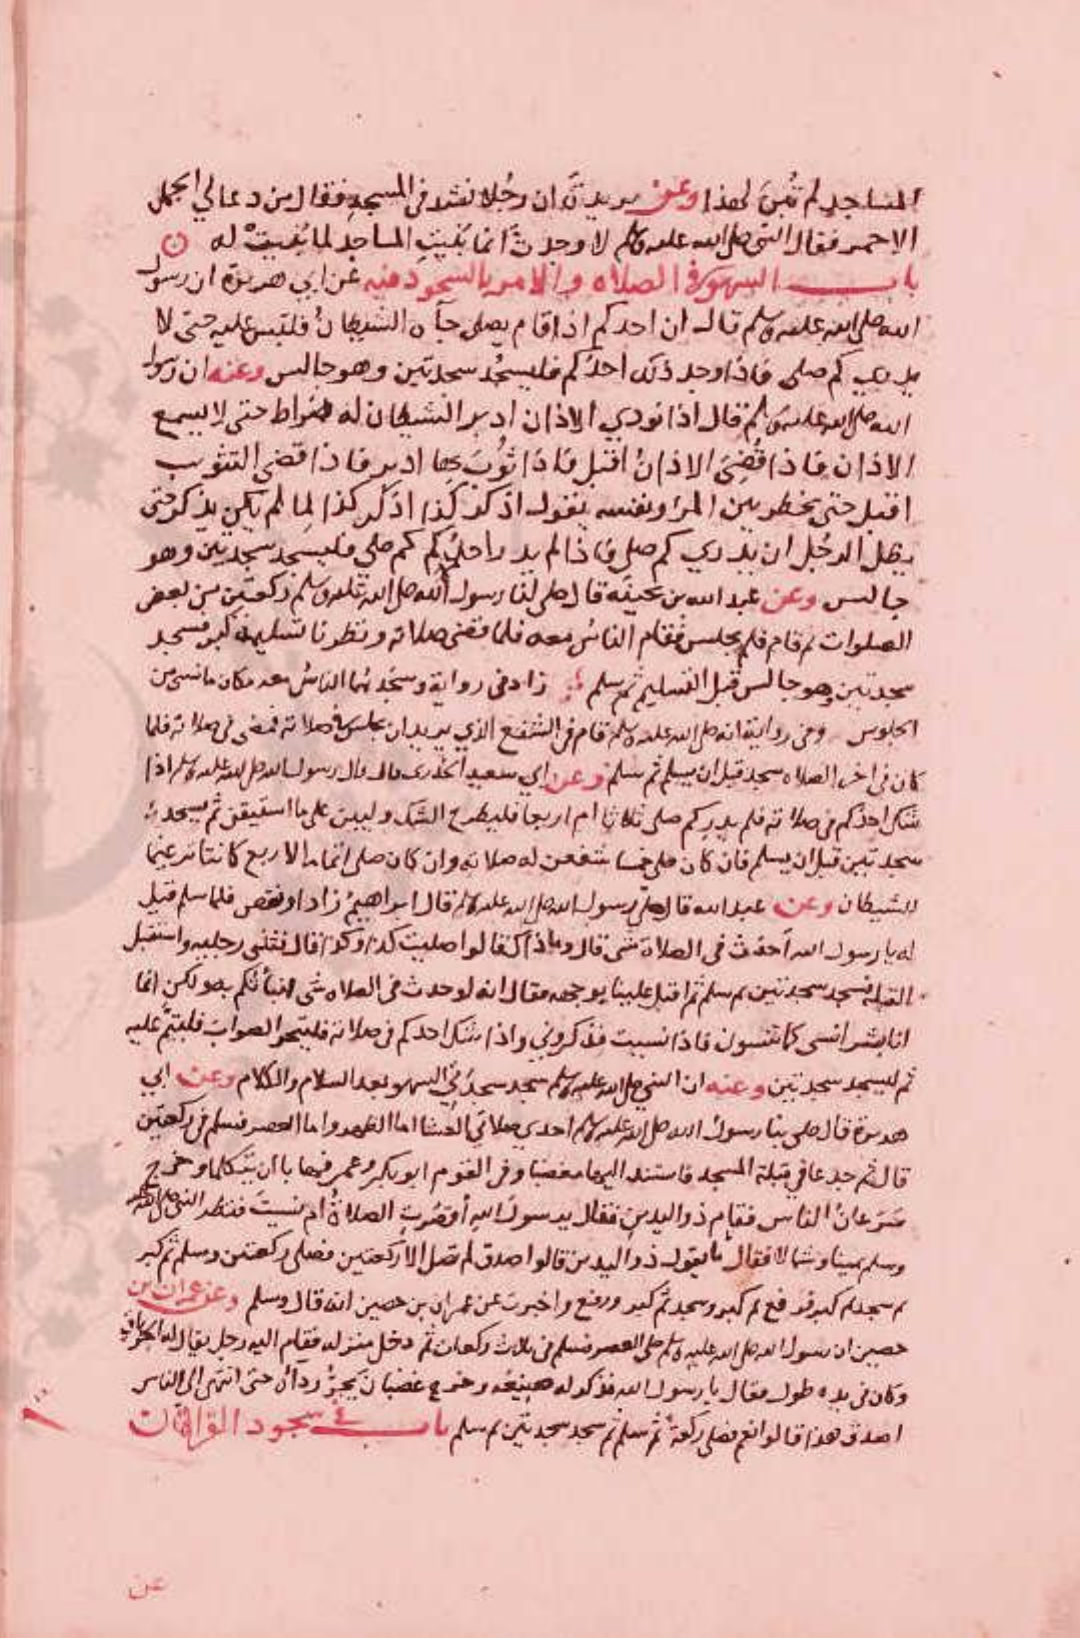 المساجد لم تُبنَ لهذا وعن بريدة ان رجُلا نشد في المسجد فقال من دعا لي الجمل
الاحمر فقال النبي صلى الله عليه وسلم لا وجدتَ انما بُنيتِ المساجد لما بُنيتْ له
باب السهو في الصلاة والامر بالسجود فيه عن ابي هريرة ان رسول
الله صلى الله عليه وسلم قال ان احدكم اذا قام يصلي جآه الشيطانُ فلبس عليه حتى لا
يدري كم صلى فاذا وجد ذلك احدُكم فليسجُد سجدتين وهو جالس وعنه ان رسول
الله صلى الله عليه وسلم قال اذا نودي الاذان ادبر الشيطان له ضراط حتى لا يسمع
الاذان فاذا قُضِيَ الاذانُ اقبل فاذا ثُوِّبَ بها ادبر فاذا قضى التثويب
اقبل حتى يخطر بين المرء ونفسه يقول اذكر كذا اذكر كذا لِما لم يكن يذكر حتى
يظل الرجُل ان يدري كم صلى فاذا لم يدر احدُكم كم صلى فليسجد سجدتين وهو
جالس وعن عبد الله بن بحينة قال صلى لنا رسول الله صلى الله عليه وسلم ركعتين من بعض
الصلوات ثم قام فلم يجلس فقام الناسُ معه فلما قضى صلاته ونظرنا تسليمه كبر فسجد
سجدتين وهو جالس قبل التسليم ثم سلم زاد في رواية وسجدهما الناسُ معه مكان ما نسي من
الجلوس وفي رواية انه صلى الله عليه وسلم قام في الشفع الذي يريد ان يجلس في صلاته فمضى في صلاته فلما
كان في اخر الصلاه سجد قبل ان يسلم ثم سلم وعن ابي سعيد الخدري قال قال رسول الله صلى الله عليه وسلم اذا
شك احدكم في صلاته فلم يدرِ كم صلى ثلاثا ام اربعا فليطرح الشك وليبن على ما استيقن ثم يسجد
سجدتين قبل ان يسلم فان كان صلى خمسا شفعن له صلاته وان كان صلى اتماما لاربع كانتا ترغيما
للشيطان وعن عبد الله قال صلى رسول الله صلى الله عليه وسلم قال ابراهيمُ زاد او نقص فلما سلم قيل
له يا رسول الله أحدث في الصلاة شي قال وما ذاك قالوا صليت كذا وكذا قال فثنى رجليه واستقبل
القبلة فسجد سجدتين ثم سلم ثم اقبل علينا بوجهه فقال انه لو حدث في الصلاه شي انبأتكم به ولكن انما
انا بشر انسى كما تنسون فاذا نسيت فذكروني واذا شك احدكم في صلاته فليتحر الصواب فليتم عليه
ثم ليسجد سجدتين وعنه ان النبي صلى الله عليه وسلم سجد سجدتي السهو بعد السلام والكلام وعن ابي
هريرة قال صلى بنا رسول الله صلى الله عليه وسلم احدي صلاتي العشا اما الظهر واما العصر فسلم في ركعتين
قال ثم جذعا في قبلة المسجد فاستند اليها مغضبا وفي القوم ابو بكر وعمر فهابا ان يتكلما وخرج
سَرَعانُ الناس فقام ذو اليدين فقال يرسول الله أقصرت الصلاةُ ام نسيتَ فنظر النبي صلى الله عليه
وسلم يمينا وشمالا فقال ما يقول ذو اليدين قالوا صدق لم تصل الا ركعتين فصلى ركعتين وسلم ثم كبر
ثم سجد ثم كبر فرفع ثم كبر وسجد ثم كبر ورفع واخبرت عن عمران بن حصين انه قال وسلم وعن عمران بن
حصين ان رسول الله صلى الله عليه وسلم صلى العصر فسلم في ثلاث ركعات ثم دخل منزله فقام اليه رجل يقال له الخرباق
وكان في يده طول فقال يا رسول الله فذكر له صنيعَه وخرج غضبان يجرُّ رداءه حتى انتهى الى الناس
اصدق هذا قالوا نعم فصلى ركعة ثم سلم ثم سجد سجدتين ثم سلم باب في سجود القرآن
عن